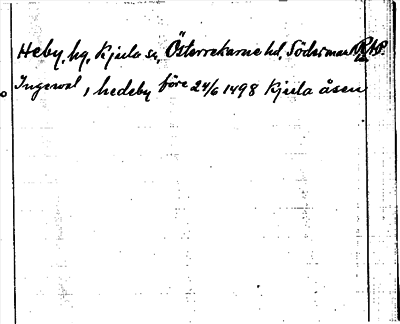 Heby, hg, Kjula sn, Österrekarne hd, Söderman
Ingewal, i hedeby före 24/6 1498 Kjula åsen